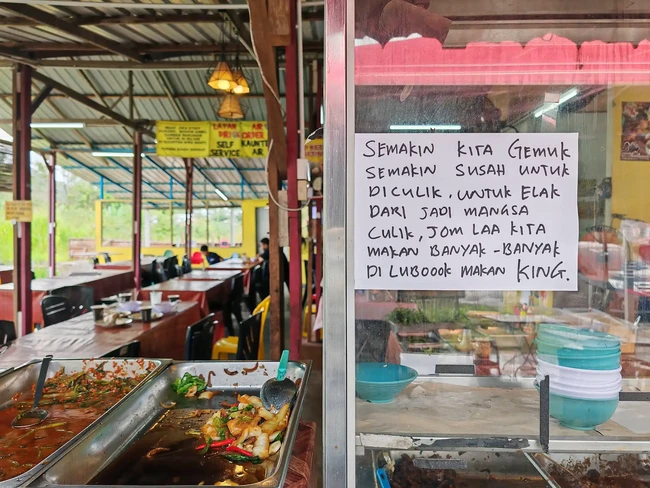 LAYAN
DIRI
SELF
SERVICE
AIR
ORDER
KAUNTER
AIR
SEMAKIN KITA GEMUK
SEMAKIN SUSAH UNTUK
DICULIK, UNTUK ELAK
DARI JADI MANGSA
CULIK, JOM LAA KITA
MAKAN BANYAK-BANYAK
DI LUBOOOK MAKAN KING.